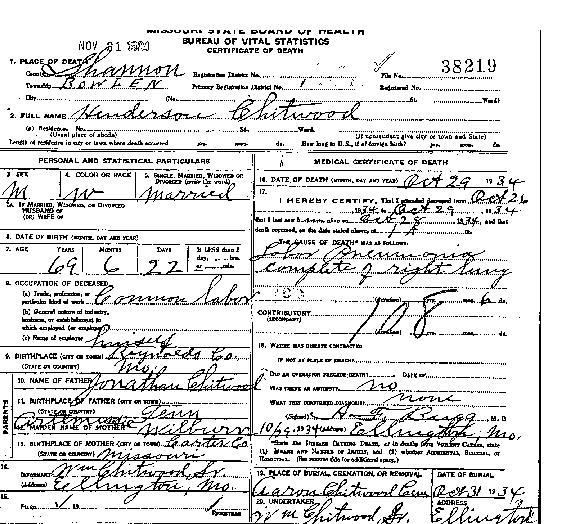 MISSOURI STATE BOARD OF HEALTH
BUREAU OF VITAL STATISTICS
CERTIFICATE OF DEATH
NOV 21
1. PLACE OF DEATH
County Shannon Registration District No. File No. 38219
Township BOWLEN Primary Registration District No. Registered No.
City (No. St. Ward)
2. FULL NAME Henderson Chitwood
(a) Residence. No. St. Ward.
(Usual place of abode) (If nonresident give city or town and State)
Length of residence in city or town where death occurred yrs. mos. ds. How long in U.S., if of foreign birth? yrs. mos. ds.
PERSONAL AND STATISTICAL PARTICULARS
3. SEX M
4. COLOR OR RACE W
5. SINGLE, MARRIED, WIDOWED OR DIVORCED (write the word) Married
5A. IF MARRIED, WIDOWED, OR DIVORCED
HUSBAND OF
(OR) WIFE OF
6. DATE OF BIRTH (MONTH, DAY AND YEAR)
7. AGE YEARS 69 MONTHS 6 DAYS 22 If LESS than 1 day, hrs. or min.
8. OCCUPATION OF DECEASED
(a) Trade, profession, or particular kind of work Common labor
(b) General nature of industry, business, or establishment in which employed (or employer)
(c) Name of employer himself
9. BIRTHPLACE (CITY OR TOWN) Reynolds Co.
(STATE OR COUNTRY) Mo.
PARENTS
10. NAME OF FATHER Jonathan Chitwood
11. BIRTHPLACE OF FATHER (CITY OR TOWN)
(STATE OR COUNTRY) Tenn
12. MAIDEN NAME OF MOTHER Wilburn
13. BIRTHPLACE OF MOTHER (CITY OR TOWN) Carter Co
(STATE OR COUNTRY) Missouri
14.
Informant Wm Chitwood Sr.
(Address) Ellington, Mo.
15.
MEDICAL CERTIFICATE OF DEATH
16. DATE OF DEATH (MONTH, DAY AND YEAR) Oct 29 1934
17.
I HEREBY CERTIFY, That I attended deceased from Oct 26
1934, to Oct 29 1934
that I last saw alive on Oct 28 1934, and that
death occurred, on the date stated above, at
THE CAUSE OF DEATH* WAS AS FOLLOWS:
Lobar Pneumonia
complete of right lung
(duration) yrs. mos. 6 ds.
CONTRIBUTORY
(SECONDARY)
108
(duration) yrs. mos. ds.
18. WHERE WAS DISEASE CONTRACTED
IF NOT AT PLACE OF DEATH?
DID AN OPERATION PRECEDE DEATH? DATE OF
WAS THERE AN AUTOPSY? no
WHAT TEST CONFIRMED DIAGNOSIS? none
(Signed) M.D.
1934 (Address) Ellington, Mo.
19. PLACE OF BURIAL, CREMATION, OR REMOVAL
Aaron Chitwood Cem
DATE OF BURIAL
Oct 31 1934
20. UNDERTAKER
Wm Chitwood Sr.
ADDRESS
Ellington